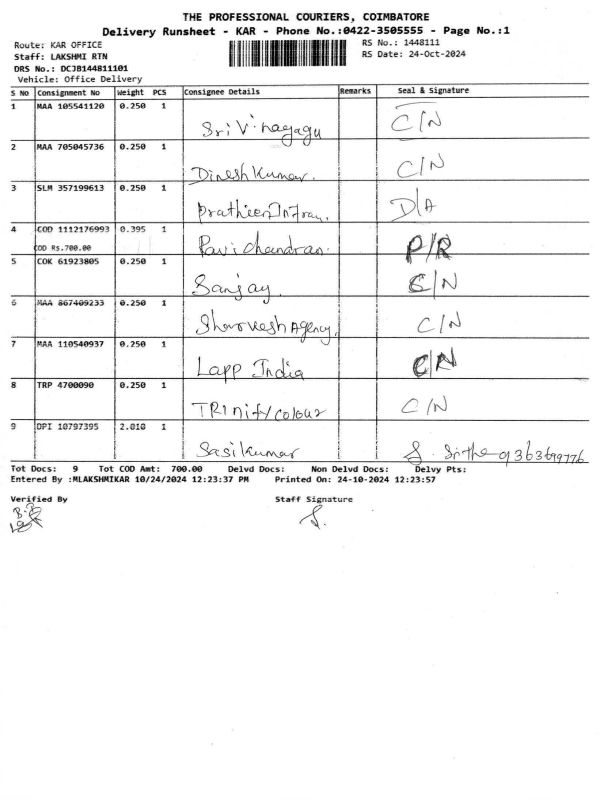 THE PROFESSIONAL COURIERS, COIMBATORE
Delivery Runsheet - KAR - Phone No.:0422-3505555 - Page No.:1
Route: KAR OFFICE RS No.: 1448111
Staff: LAKSHMI RTN RS Date: 24-Oct-2024
DRS No.: DCJB144811101
Vehicle: Office Delivery
S No Consignment No Weight PCS Consignee Details Remarks Seal & Signature
1 MAA 105541120 0.250 1
Sri Vinayaga C/N
2 MAA 705045736 0.250 1
Dinesh Kumar. C/N
3 SLM 357199613 0.250 1
D/A
4 COD 1112176993 0.395 1
COD Rs.700.00 Ravi chandran. P/R
5 COK 61923805 0.250 1
Sanjay. C/N
6 MAA 867409233 0.250 1
Sharvesh Agency. C/N
7 MAA 110540937 0.250 1
Lapp India C/N
8 TRP 4700090 0.250 1
TRinity colour C/N
9 DPI 10797395 2.010 1
Sasikumar S. 9363699776
Tot Docs: 9 Tot COD Amt: 700.00 Delvd Docs: Non Delvd Docs: Delvy Pts:
Entered By :MLAKSHMIKAR 10/24/2024 12:23:37 PM Printed On: 24-10-2024 12:23:57
Verified By Staff Signature